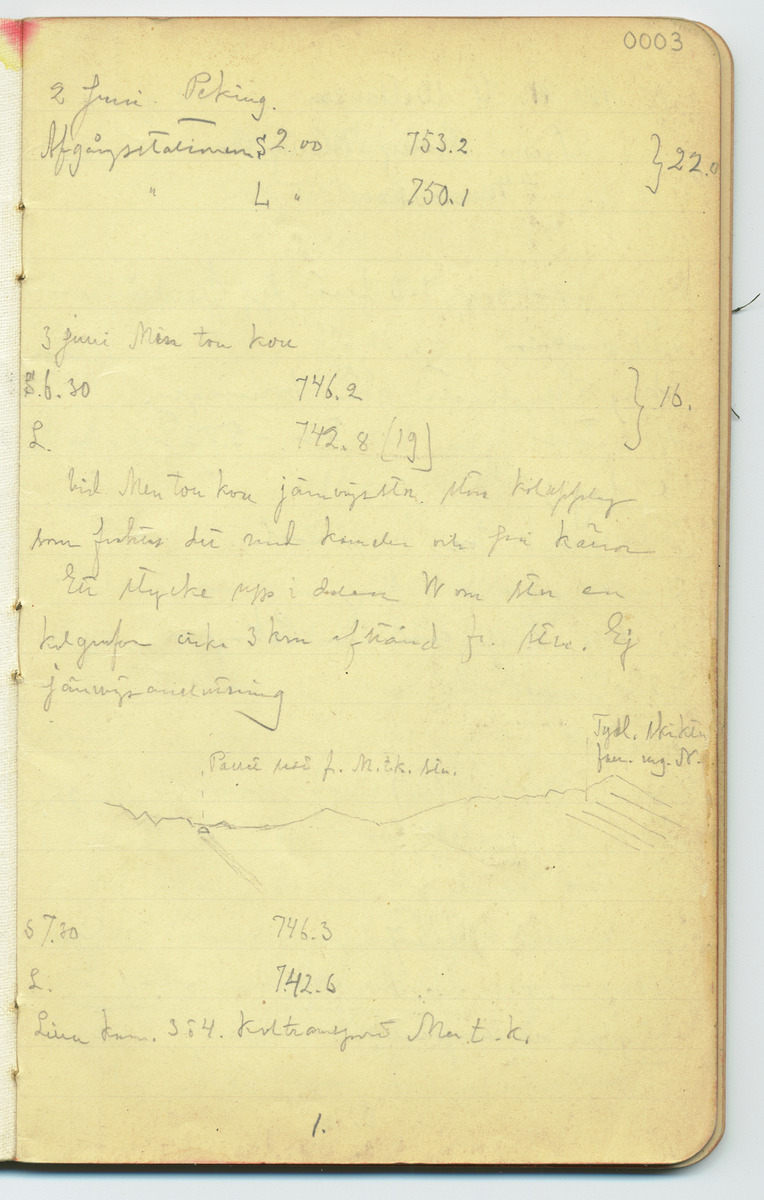 0003
2 Juni. Peking.
Afgångsstationen S 2.00 753.2 } 22.0
" L " 750.1
3 juni Men tou kou
S. 6.30 746.2 } 16.
L. 742.8 [19]
Vid Men tou kou järnvägsstn. stor kolupplag
som fraktas dit med kameler och på kärror
Ett stycke upp i dalen W om stn en
kolgrufva cirka 3 km afstånd fr. stn. Ej
järnvägsanslutning
Tydl. skikten
Parti mot f. M.t.k. stn.
S 7.30 746.3
L. 742.6
kam. 3 o 4. Koltransport Men t. k.
1.